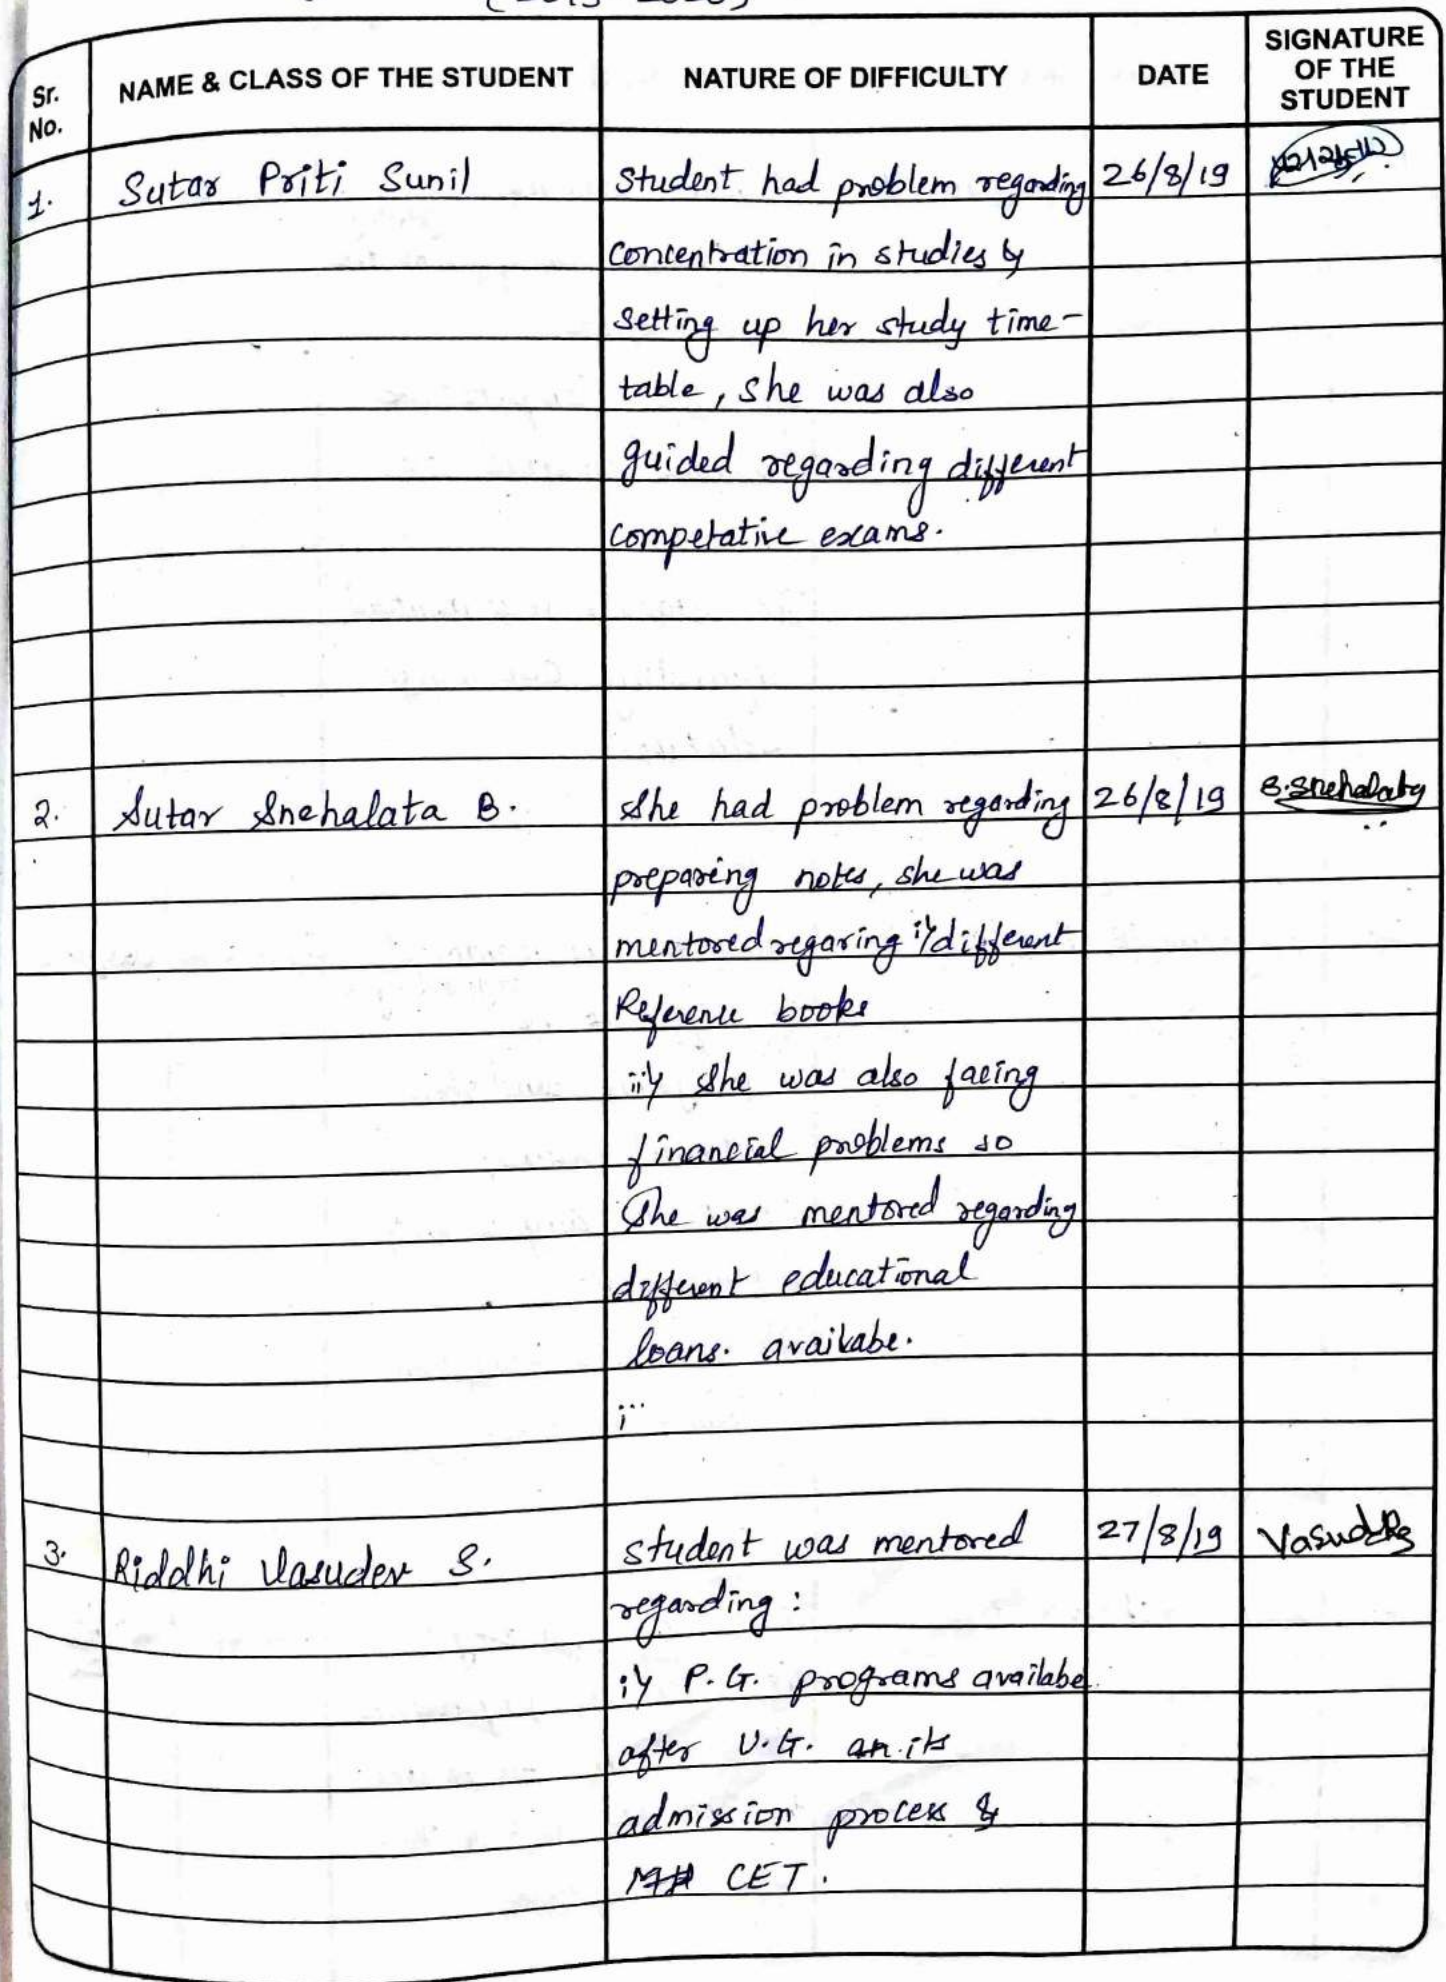 Sr. No. NAME & CLASS OF THE STUDENT NATURE OF DIFFICULTY DATE SIGNATURE OF THE STUDENT
1. Sutar Priti Sunil Student had problem regarding 26/8/19
Concentration in studies &
Setting up her study time-
table, She was also
guided regarding different
competative exams.
2. Sutar Snehalata B. She had problem regarding 26/8/19 B.Snehalata
preparing notes, she was
mentored regaring i) different
Reference books
ii) She was also facing
financial problems so
She was mentored regarding
different educational
loans. availabe.
3. Riddhi Vasudev S. Student was mentored 27/8/19
regarding :
i) P.G. programs availabe
after U.G. an its
admission process &
CET.